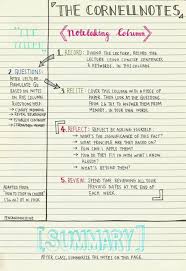 THE CORNELLNOTES
Notetaking Column
1. RECORD: DURING THE LECTURE, RECORD THE
LECTURE USING CONCISE SENTENCES
& KEYWORDS, IN THIS COLUMN
2. QUESTIONS:
AFTER LECTURE,
FORMULATE QS
BASED ON NOTES
ON THIS COLUMN.
QUESTIONS HELP
• CLARIFY MEANING
• REVEAL RELATIONSHIP
• ESTABLISH CONTINUITY
• STRENGTHEN
MEMORY
3. RECITE: COVER THIS COLUMN WITH A PIECE OF
PAPER. THEN LOOK AT THE QUESTIONS
FROM AND TRY TO ANSWER THEM
FROM MEMORY, IN YOUR OWN WORDS.
4. REFLECT: REFLECT BY ASKING YOURSELF:
• WHAT'S THE SIGNIFICANCE OF THIS FACT?
• WHAT PRINCIPLE ARE THEY BASED ON?
• HOW CAN I APPLY THEM?
• HOW DO THEY FIT IN WITH WHAT I KNOW
ALREADY?
• WHAT'S BEYOND THEM?
5. REVIEW: SPEND TIME REVIEWING ALL YOUR
PREVIOUS NOTES AT THE END OF
EACH WEEK.
ADAPTED FROM
"HOW TO STUDY IN COLLEGE"
[SUMMARY]
AFTER CLASS, SUMMARIZE THE NOTES ON THIS PAGE.